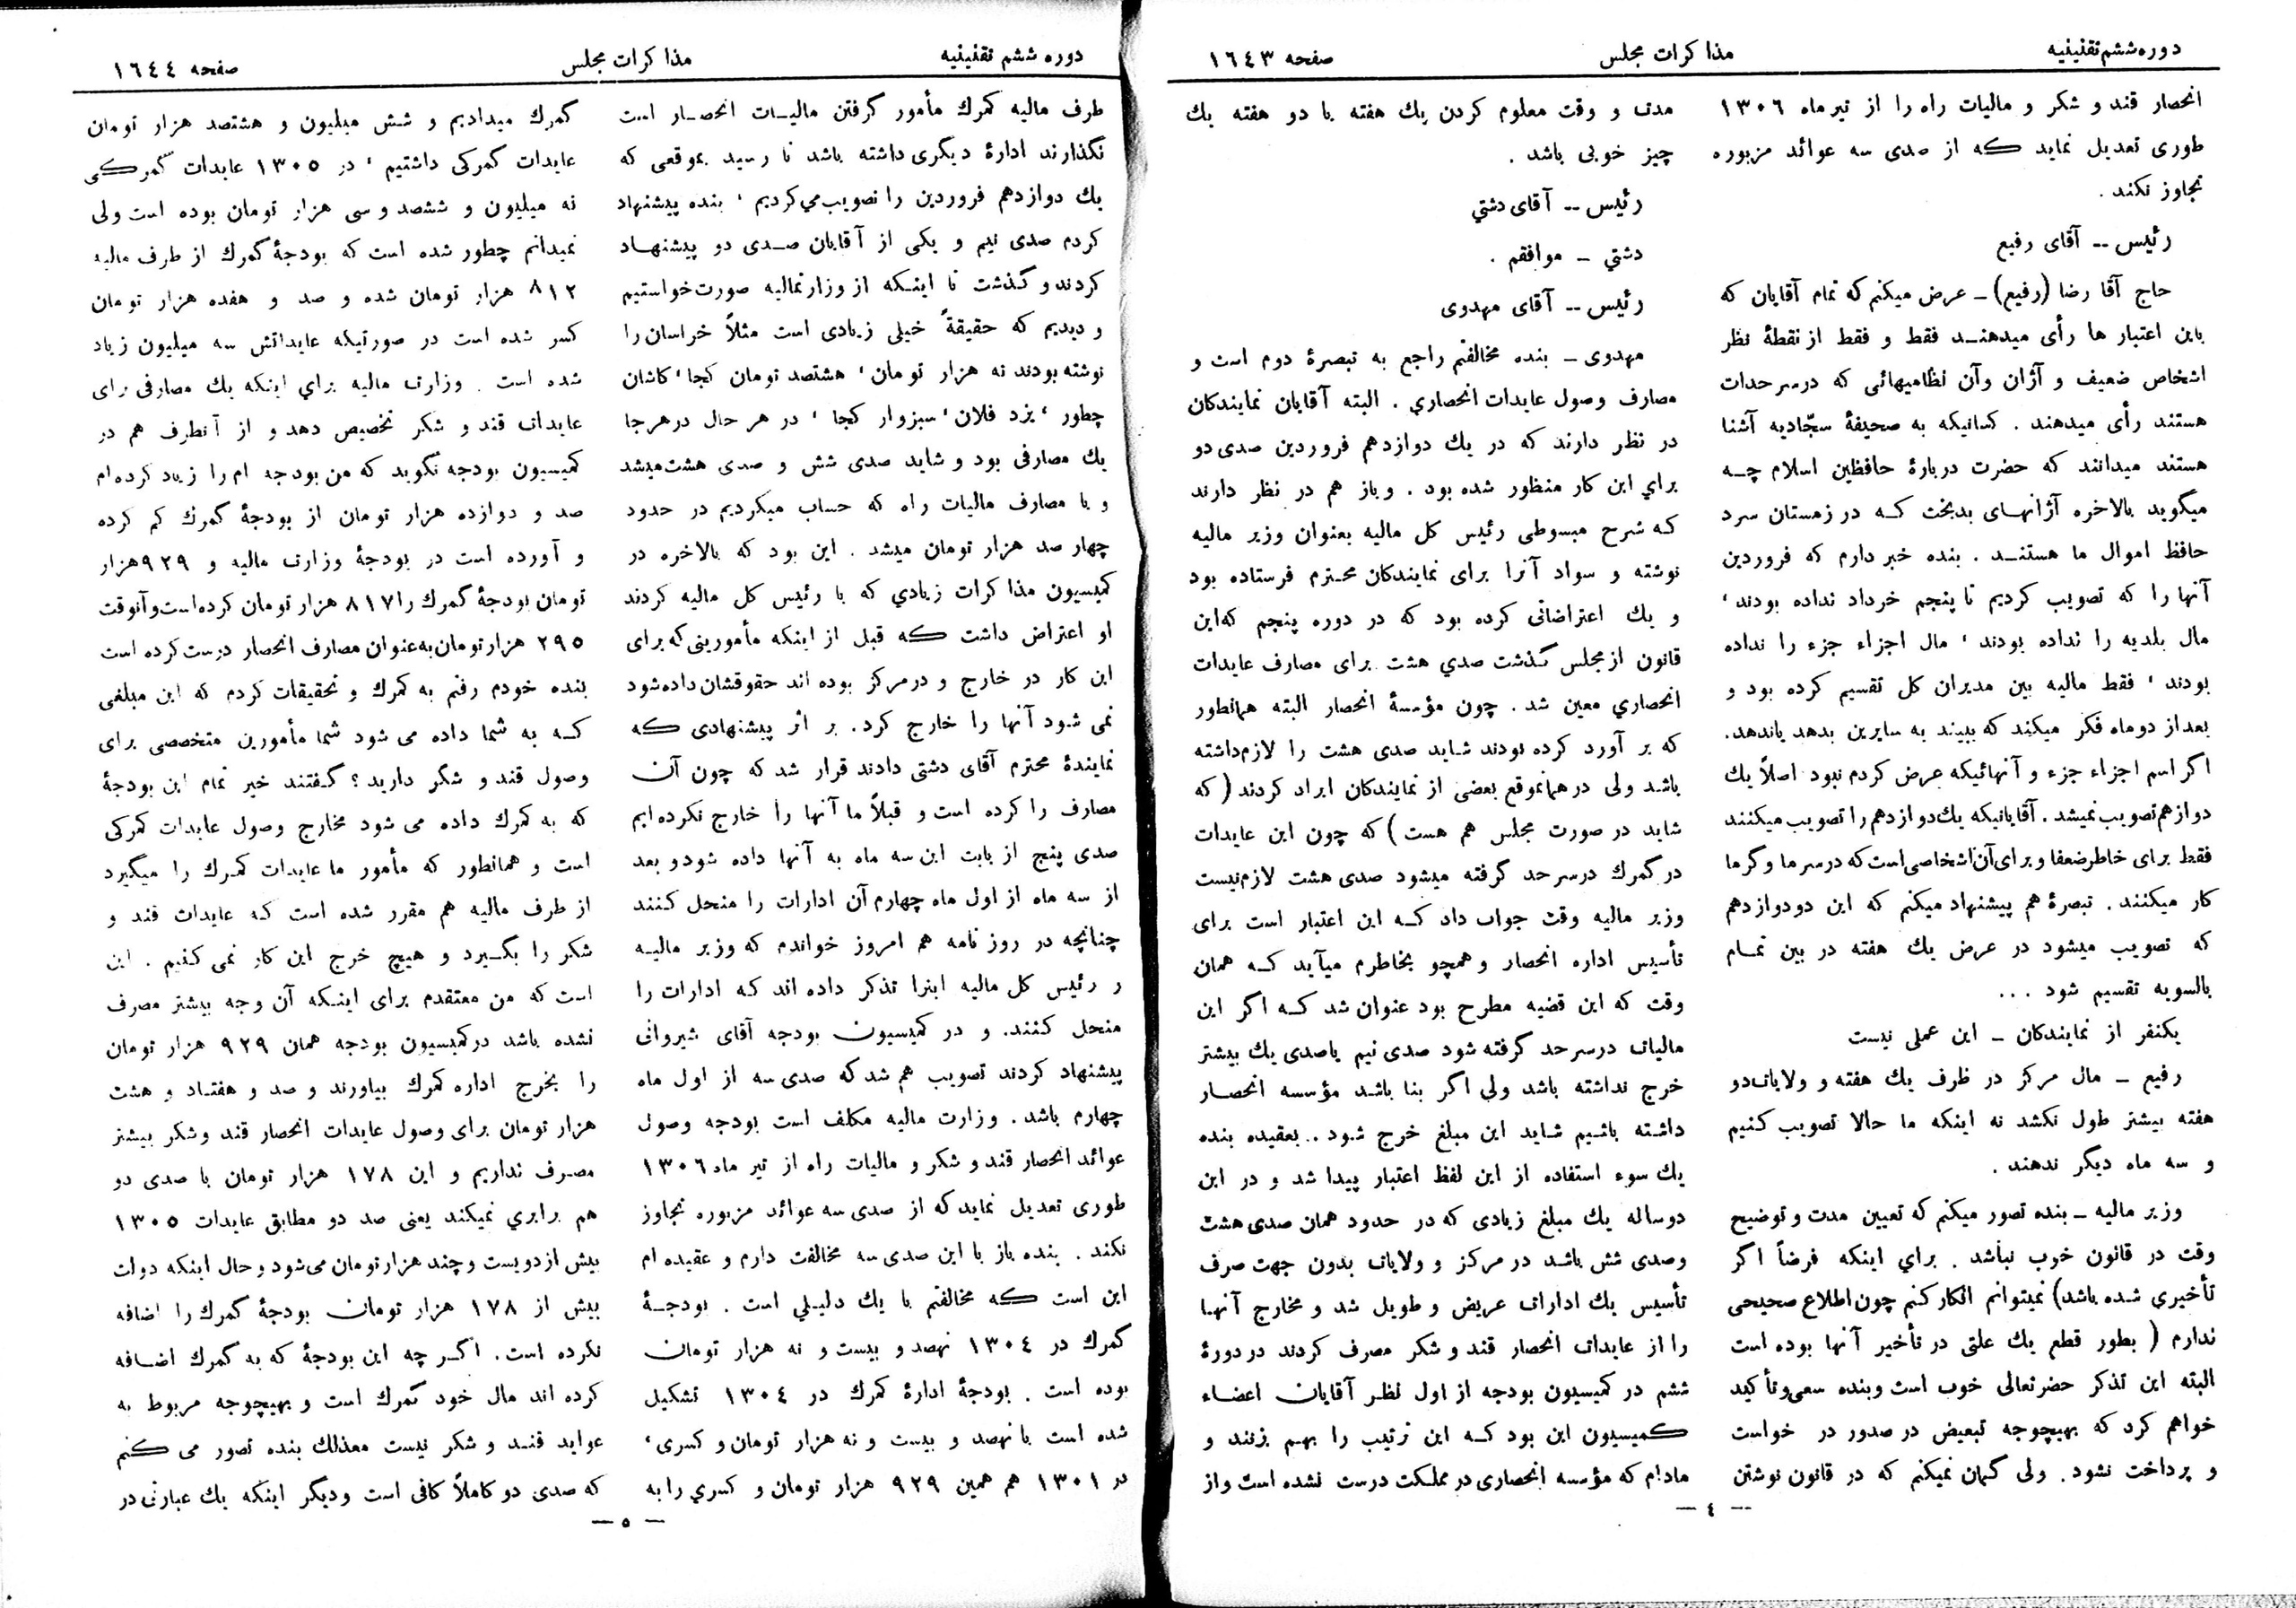 دوره ششم تقنینیه
مذاکرات مجلس
صفحه ۱۶۴۳
انحصار قند و شکر و مالیات راه را از تیر ماه ۱۳۰۶
طوری تعدیل نماید که از صدی سه عوائد مزبوره
تجاوز نکند .
رئیس -- آقای رفیع
حاج آقا رضا (رفیع) - عرض میکنم که تمام آقایان که
باین اعتبار ها رأی میدهند فقط و فقط از نقطهٔ نظر
اشخاص ضعیف و آژان و آن نظامیهائی که در سرحدات
هستند رأی میدهند . کسانیکه به صحیفهٔ سجّادیه آشنا
هستند میدانند که حضرت دربارهٔ حافظین اسلام چه
میگوید بالاخره آژانهای بدبخت که در زمستان سرد
حافظ اموال ما هستند . بنده خبر دارم که فروردین
آنها را که تصویب کردیم تا پنجم خرداد نداده بودند ،
مال بلدیه را نداده بودند ، مال اجزاء جزء را نداده
بودند ، فقط مالیه بین مدیران کل تقسیم کرده بود و
بعد از دو ماه فکر میکند که ببیند به سایرین بدهد یا ندهد.
اگر اسم اجزاء جزء و آنهائیکه عرض کردم نبود اصلاً یك
دوازدهم تصویب نمیشد . آقایانیکه یك دوازدهم را تصویب میکنند
فقط برای خاطر ضعفا و برای آن اشخاصی است که در سرما و گرما
کار میکنند . تبصرهٔ هم پیشنهاد میکنم که این دو دوازدهم
که تصویب میشود در عرض یك هفته در بین تمام
بالسویه تقسیم شود ...
یکنفر از نمایندکان - این عملی نیست
رفیع - مال مرکز در ظرف یك هفته و ولایات دو
هفته بیشتر طول نکشد نه اینکه ما حالا تصویب کنیم
و سه ماه دیگر ندهند .
وزیر مالیه - بنده تصور میکنم که تعیین مدت و توضیح
وقت در قانون خوب نباشد . برای اینکه فرضاً اگر
تأخیری شده باشد) نمیتوانم انکار کنم چون اطلاع صحیحی
ندارم ( بطور قطع یك علتی در تأخیر آنها بوده است
البته این تذکر حضرتعالی خوب است و بنده سعی و تأکید
خواهم کرد که بهیچوجه تبعیض در صدور در خواست
و پرداخت نشود . ولی گمان نمیکنم که در قانون نوشتن
مدت و وقت معلوم کردن یك هفته یا دو هفته یك
چیز خوبی باشد .
رئیس -- آقای دشتي
دشتي - موافقم .
رئیس -- آقای مهدوی
مهدوی - بنده مخالفتم راجع به تبصرهٔ دوم است و
مصارف وصول عایدات انحصاري . البته آقایان نمایندکان
در نظر دارند که در یك دوازدهم فروردین صدی دو
برای این کار منظور شده بود . و باز هم در نظر دارند
که شرح مبسوطی رئیس کل مالیه بعنوان وزیر مالیه
نوشته و سواد آنرا برای نمایندکان محترم فرستاده بود
و یك اعتراضاتی کرده بود که در دوره پنجم که این
قانون از مجلس گذشت صدي هشت برای مصارف عایدات
انحصاري معین شد . چون مؤسسهٔ انحصار البته همانطور
که بر آورد کرده بودند شاید صدی هشت را لازم داشته
باشد ولی در همانموقع بعضی از نمایندکان ایراد کردند ( که
شاید در صورت مجلس هم هست ) که چون این عایدات
در گمرك در سرحد گرفته میشود صدی هشت لازم نیست
وزیر مالیه وقت جواب داد که این اعتبار است برای
تأسیس اداره انحصار و همچو بخاطرم میآید که همان
وقت که این قضیه مطرح بود عنوان شد که اگر این
مالیات در سرحد گرفته شود صدی نیم یا صدی یك بیشتر
خرج نداشته باشد ولي اگر بنا باشد مؤسسه انحصار
داشته باشیم شاید این مبلغ خرج شود .. بعقیده بنده
یك سوء استفاده از این لفظ اعتبار پیدا شد و در این
دوساله یك مبلغ زیادی که در حدود همان صدی هشت
وصدی شش باشد در مرکز و ولایات بدون جهت صرف
تأسیس یك ادارات عریض و طویل شد و مخارج آنها
را از عایدات انحصار قند و شکر مصرف کردند در دورهٔ
ششم در کمیسیون بودجه از اول نظر آقایان اعضاء
کمیسیون این بود که این ترتیب را بهم بزنند و
مادام که مؤسسه انحصاری در مملکت درست نشده است و از
- ٤ -
دوره ششم تقنینیه
مذاکرات مجلس
صفحه ۱۶۴۴
طرف مالیه گمرك مأمور گرفتن مالیات انحصار است
نگذارند ادارهٔ دیگری داشته باشد تا رسید بموقعی که
یك دوازدهم فروردین را تصویب می کردیم ، بنده پیشنهاد
کردم صدی نیم و یکی از آقایان صدی دو پیشنهاد
کردند و گذشت تا اینکه از وزارتمالیه صورت خواستیم
و دیدیم که حقیقةً خیلی زیادی است مثلاً خراسان را
نوشته بودند نه هزار تومان ، هشتصد تومان کجا ، کاشان
چطور ، یزد فلان ، سبزوار کجا ، در هر حال در هر جا
یك مصارفی بود و شاید صدی شش و صدی هشت میشد
و یا مصارف مالیات راه که حساب میکردیم در حدود
چهار صد هزار تومان میشد . این بود که بالاخره در
کمیسیون مذاکرات زیادي که با رئیس کل مالیه کردند
او اعتراض داشت که قبل از اینکه مأمورینی که برای
این کار در خارج و در مرکز بوده اند حقوقشان داده شود
نمی شود آنها را خارج کرد . بر اثر پیشنهادی که
نمایندهٔ محترم آقای دشتی دادند قرار شد که چون آن
مصارف را کرده است و قبلاً ما آنها را خارج نکرده ایم
صدی پنج از بابت این سه ماه به آنها داده شود و بعد
از سه ماه از اول ماه چهارم آن ادارات را منحل کنند
چنانچه در روز نامه هم امروز خواندم که وزیر مالیه
و رئیس کل مالیه اینرا تذکر داده اند که ادارات را
منحل کنند. و در کمیسیون بودجه آقای شیروانی
پیشنهاد کردند تصویب هم شد که صدی سه از اول ماه
چهارم باشد . وزارت مالیه مکلف است بودجه وصول
عوائد انحصار قند و شکر و مالیات راه از تیر ماه ۱۳۰۶
طوری تعدیل نماید که از صدی سه عوائد مزبوره تجاوز
نکند . بنده باز با این صدی سه مخالفت دارم و عقیده ام
این است که مخالفتم با یك دلیلي است . بودجهٔ
گمرك در ۱۳۰٤ نهصد و بیست و نه هزار تومان
بوده است . بودجهٔ ادارهٔ گمرك در ۱۳۰٤ تشکیل
شده است با نهصد و بیست و نه هزار تومان و کسری ،
در ۱۳۰۱ هم همین ۹۲۹ هزار تومان و کسري را به
گمرك میدادیم و شش میلیون و هشتصد هزار تومان
عایدات گمرکی داشتیم ، در ۱۳۰۵ عایدات گمرکی
نه میلیون و ششصد و سی هزار تومان بوده است ولی
نمیدانم چطور شده است که بودجهٔ گمرك از طرف مالیه
۸۱۲ هزار تومان شده و صد و هفده هزار تومان
کسر شده است در صورتیکه عایداتش سه میلیون زیاد
شده است . وزارت مالیه برای اینکه یك مصارفی برای
عایدات قند و شکر تخصیص دهد و از آنطرف هم در
کمیسیون بودجه نگوید که من بودجه ام را زیاد کرده ام
صد و دوازده هزار تومان از بودجهٔ گمرك کم کرده
و آورده است در بودجهٔ وزارت مالیه و ۹۲۹ هزار
تومان بودجهٔ گمرك را ۸۱۷ هزار تومان کرده است و آنوقت
۲۹۵ هزار تومان به عنوان مصارف انحصار درست کرده است
بنده خودم رفتم به گمرك و تحقیقات کردم که این مبلغی
که به شما داده می شود شما مأمورین متخصصی برای
وصول قند و شکر دارید ؟ گفتند خیر تمام این بودجهٔ
که به گمرك داده می شود مخارج وصول عایدات گمرکی
است و همانطور که مأمور ما عایدات گمرك را میگیرد
از طرف مالیه هم مقرر شده است که عایدات قند و
شکر را بگیرد و هیچ خرج این کار نمی کنیم . این
است که من معتقدم برای اینکه آن وجه بیشتر مصرف
نشده باشد در کمیسیون بودجه همان ۹۲۹ هزار تومان
را بخرج اداره گمرك بیاورند و صد و هفتاد و هشت
هزار تومان برای وصول عایدات انحصار قند و شکر بیشتر
مصرف نداریم و این ۱۷۸ هزار تومان با صدی دو
هم برابري نمیکند یعنی صد دو مطابق عایدات ۱۳۰۵
بیش از دویست و چند هزار تومان می شود و حال اینکه دولت
بیش از ۱۷۸ هزار تومان بودجهٔ گمرك را اضافه
نکرده است . اگر چه این بودجهٔ که به گمرك اضافه
کرده اند مال خود گمرك است و بهیچوجه مربوط به
عواید قند و شکر نیست معذلك بنده تصور می کنم
که صدی دو کاملاً کافی است و دیگر اینکه یك عبارتی در
- ٥ -